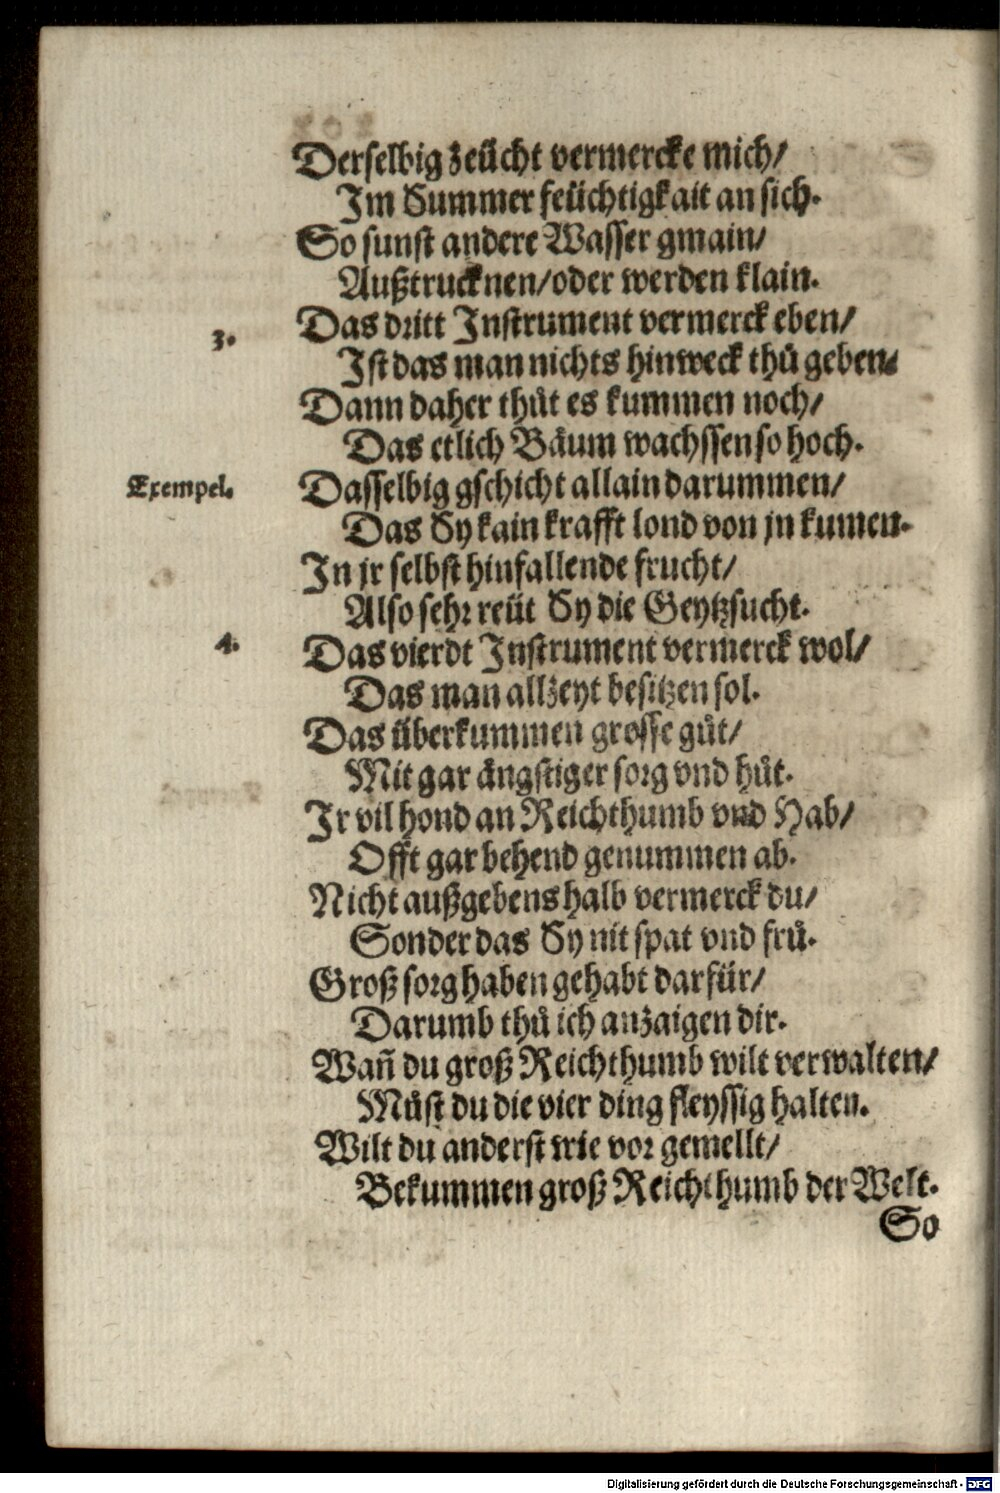 Derselbig zeücht vermercke mich/
Im Summer feüchtigkait an sich.
So sunst andere Wasser gmain/
Außtrucknen/oder werden klain.
3. Das dritt Instrument vermerck eben/
Ist das man nichts hinweck thů geben.
Dann daher thůt es kummen noch/
Das etlich Bäum wachssen so hoch.
Exempel. Dasselbig gschicht allain darummen/
Das Sy kain krafft lond von jn kumen.
In jr selbst hinfallende frucht/
Also sehr reüt Sy die Geytzsucht.
4. Das vierdt Instrument vermerck wol/
Das man allzeyt besitzen sol.
Das überkummen grosse gůt/
Mit gar ängstiger sorg vnd hůt.
Ir vil hond an Reichthumb vnd Hab/
Offt gar behend genummen ab.
Nicht außgebens halb vermerck du/
Sonder das Sy nit spat vnd frů.
Groß sorg haben gehabt darfür/
Darumb thů ich anzaigen dir.
Wañ du groß Reichthumb wilt verwalten/
Můst du die vier ding fleyssig halten.
Wilt du anderst wie vor gemellt/
Bekummen groß Reichthumb der Welt.
So
Digitalisierung gefördert durch die Deutsche Forschungsgemeinschaft - DFG